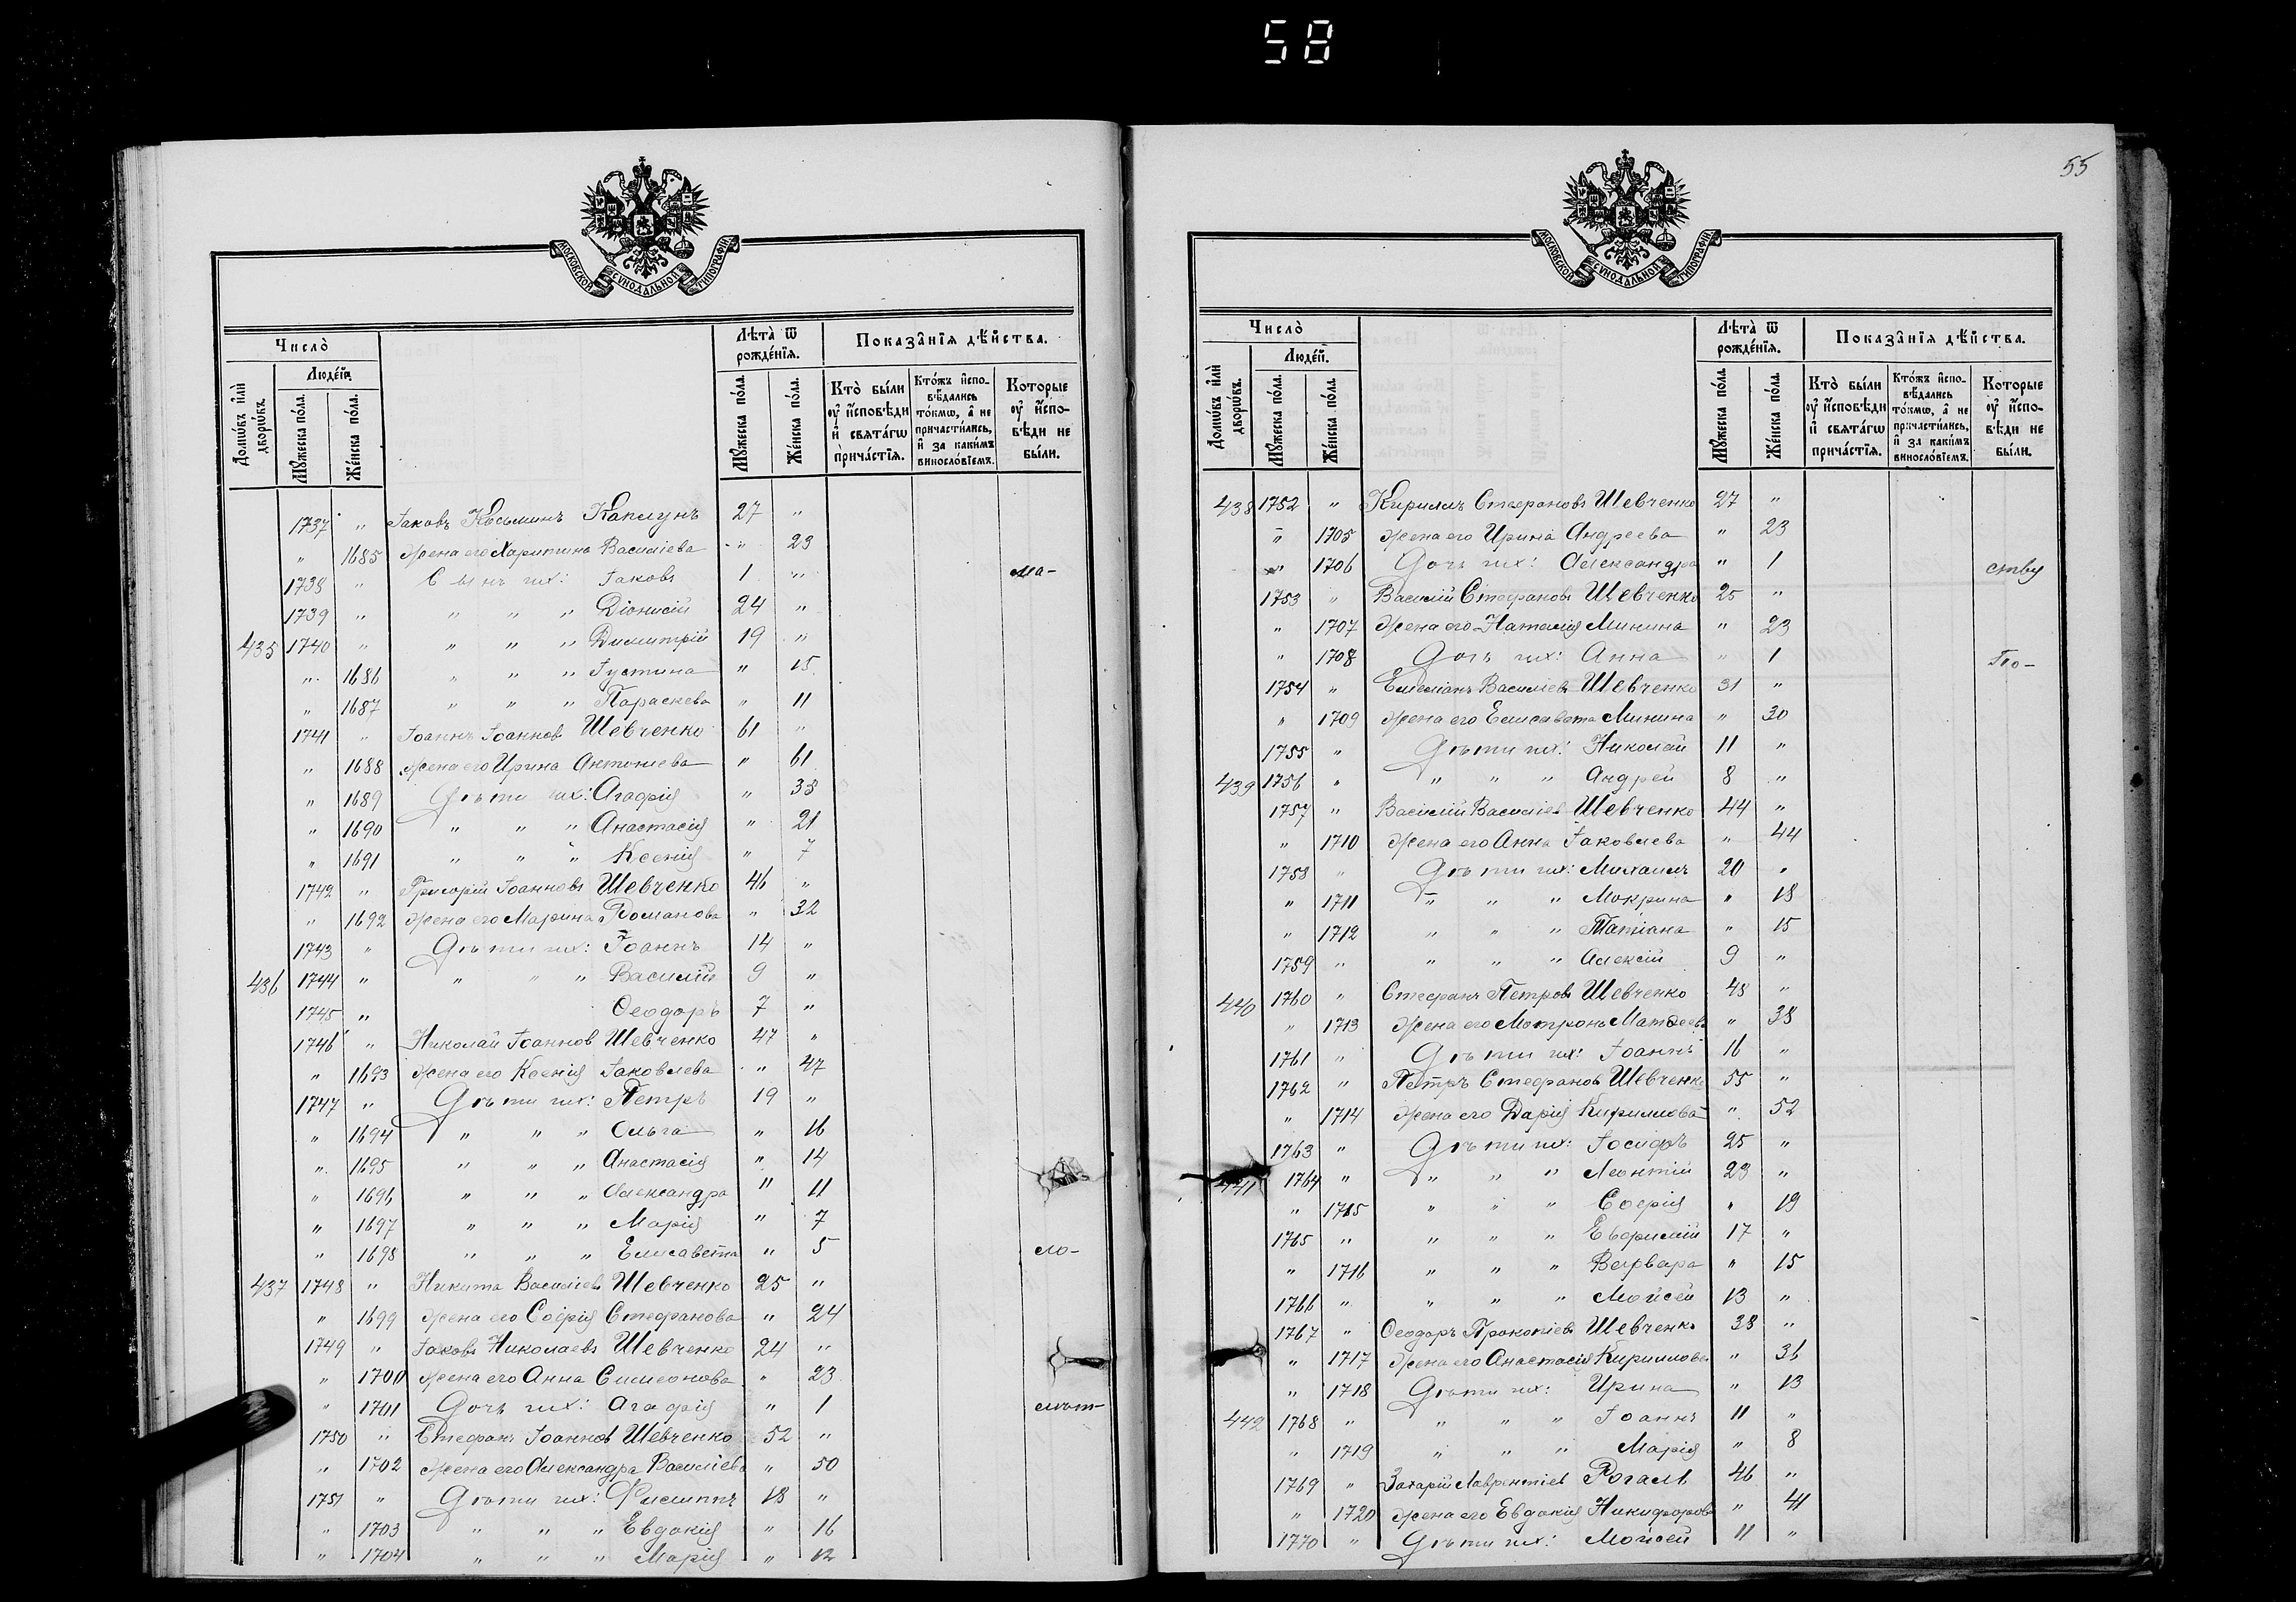 58
МОСКОВСКОЙ СѴНОДАЛЬНОЙ ТИПОГРАФІИ
Число̀
Лѣта̀ ѿ рожде́нїѧ.
Показа̂нїѧ дѣ́йства.
Домѡ́въ и҆лѝ дворѡ́въ.
Люде́й.
Мꙋ́жеска по́ла.
Же́нска по́ла.
Мꙋ́жеска по́ла.
Же́нска по́ла.
Кто̀ бы́ли ᲂу҆ и҆сповѣ́ди и҆ свѧта́гѡ прича́стїѧ.
Кто́жъ и҆спо-вѣ́дались то́кмѡ, а҆ не причасти́лись, и҆ за каки́мъ винослѡ́вїемъ.
Которые ᲂу҆ и҆спо-вѣ́ди не бы́ли.
1737 " Іаковъ Косьминъ Каплунъ 27 "
" 1685 Жена его Харитина Василіева " 23
1738 " Сынъ их: Іаковъ 1 " ма-
1739 " " " " Діонисій 24 "
435 1740 " " " " Димитрій 19 "
" 1686 " " " Іустина " 15
" 1687 " " " Параскева " 11
1741 " Іоаннъ Іоаннов Шевченко 61 "
" 1688 Жена его Ирина Антониева " 61
" 1689 Дѣти их: Агафія " 33
" 1690 " " " Анастасія " 21
" 1691 " " " Ксенія " 7
1742 " Григорій Іоанновъ Шевченко 46 "
" 1692 Жена его Марина Романова " 32
1743 " Дѣти их: Іоаннъ 14 "
436 1744 " " " " Василій 9 "
1745 " Ѳеодоръ 7 "
1746 " Николай Іоаннов Шевченко 47 "
" 1693 Жена его Ксенія Іаковлева " 47
1747 " Дѣти их: Петръ 19 "
" 1694 " " " Ольга " 16
" 1695 " " " Анастасія " 14
" 1696 " " " Александра " 11
" 1697 " " " Марія " 7
" 1698 " " " Елисавета " 5 ло-
437 1748 " Никита Василіев Шевченко 25 "
" 1699 Жена его Софія Стефанова " 24
1749 " Іаковъ Николаевъ Шевченко 24 "
" 1700 Жена его Анна Симеонова " 23
" 1701 Дочь их: Агафія " 1
1750 " Стефанъ Іоаннов Шевченко 52 "
" 1702 Жена его Александра Василіева " 50
1751 " Дѣти их: Филиппъ 18 "
" 1703 " " " Евдокія " 16
" 1704 " " " Марія " 12
55
МОСКОВСКОЙ СѴНОДАЛЬНОЙ ТИПОГРАФІИ
Число̀
Лѣта̀ ѿ рожде́нїѧ.
Показа̂нїѧ дѣ́йства.
Домѡ́въ и҆лѝ дворѡ́въ.
Люде́й.
Мꙋ́жеска по́ла.
Же́нска по́ла.
Мꙋ́жеска по́ла.
Же́нска по́ла.
Кто̀ бы́ли ᲂу҆ и҆сповѣ́ди и҆ свѧта́гѡ прича́стїѧ.
Кто́жъ и҆спо-вѣ́дались то́кмѡ, а҆ не причасти́лись, и҆ за каки́мъ винослѡ́вїемъ.
Которые ᲂу҆ и҆спо-вѣ́ди не бы́ли.
438 1752 " Кириллъ Стефановъ Шевченко 27 "
" 1705 Жена его Ирина Андреева " 23
" 1706 Дочь их: Александра " 1 ству
1753 " Василій Стефановъ Шевченко 25 "
" 1707 Жена его Наталія Минина " 23
" 1708 Дочь их: Анна " 1 По-
1754 " Емеліанъ Василіев Шевченко 31 "
" 1709 Жена его Елисавета Минина " 30
1755 " Дѣти их: Николай 11 "
439 1756 " " " " Андрей 8 "
1757 " Василій Василіев Шевченко 44 "
" 1710 Жена его Анна Іаковлева " 44
1758 " Дѣти их: Михаилъ 20 "
" 1711 " " " Мокрина " 18
" 1712 " " " Татіана " 15
1759 " " " " Алексій 9 "
440 1760 " Стефанъ Петровъ Шевченко 48 "
" 1713 Жена его Мотрона Матѳеева " 38
1761 " Дѣти их: Іоаннъ 16 "
1762 " Петръ Стефанов Шевченко 55 "
" 1714 Жена его Дарія Кириллова " 52
1763 " Дѣти их: Іосифъ 25 "
441 1764 " " " " Леонтій 23 "
" 1715 " " " Софія " 19
1765 " " " " Евфимій 17 "
" 1716 " " " Варвара " 15
1766 " " " " Мойсей 13 "
1767 " Ѳеодоръ Прокопіевъ Шевченко 38 "
" 1717 Жена его Анастасія Кириллова " 36
" 1718 Дѣти их: Ирина " 13
442 1768 " " " " Іоаннъ 11 "
" 1719 " " " Марія " 8
1769 " Захарій Лаврентіев Рогаль 46 "
" 1720 Жена его Евдокія Никифорова " 41
1770 " Дѣти их: Мойсей 11 "